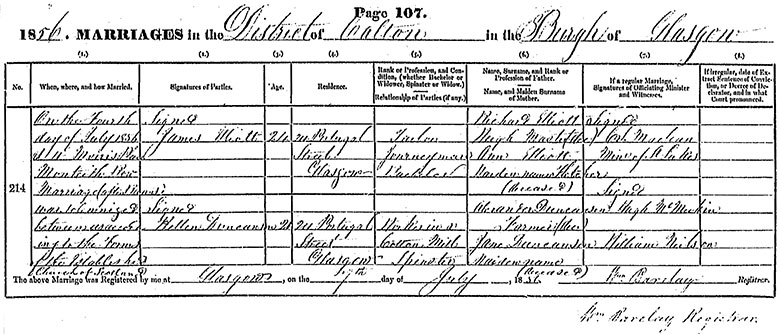 Page 107.
1856. MARRIAGES in the District of Calton in the Burgh of Glasgow
(1.) (2.) (3.) (4.) (5.) (6.) (7.) (8.)
No.
When, where, and how Married.
Signatures of Parties.
Age.
Residence.
Rank or Profession, and Condition, (whether Bachelor or Widower, Spinster or Widow.)
Relationship of Parties (if any.)
Name, Surname, and Rank or Profession of Father.
Name, and Maiden Surname of Mother.
If a regular Marriage, Signatures of Officiating Minister and Witnesses.
If irregular, date of Extract Sentence of Conviction, or Decree of Declarator, and in what Court pronounced.
214
On the Fourth
day of July 1856
at
Monteith Row
Marriage (after Banns)
was solemnized
between us accord
ing to the Forms
of the Established
Church of Scotland
Signed
James Elliott
Signed
Hellen Duncanson
24
21
24 Portugal
Street
Glasgow
24 Portugal
Street
Glasgow
Tailor
Journeyman
Bachelor
Works in a
Cotton Mill
Spinster
Richard Elliott
Ann Elliott
Maiden name Fletcher
(deceased)
Alexander Duncanson
Farmer
Jane Duncanson
Maiden name
(deceased)
Signed
Maclean
Signed
Hugh McMeekin
William Neilson
The above Marriage was Registered by me at Glasgow, on the 7th day of July, 1856. Wm Barclay Registrar.
Wm Barclay Registrar.